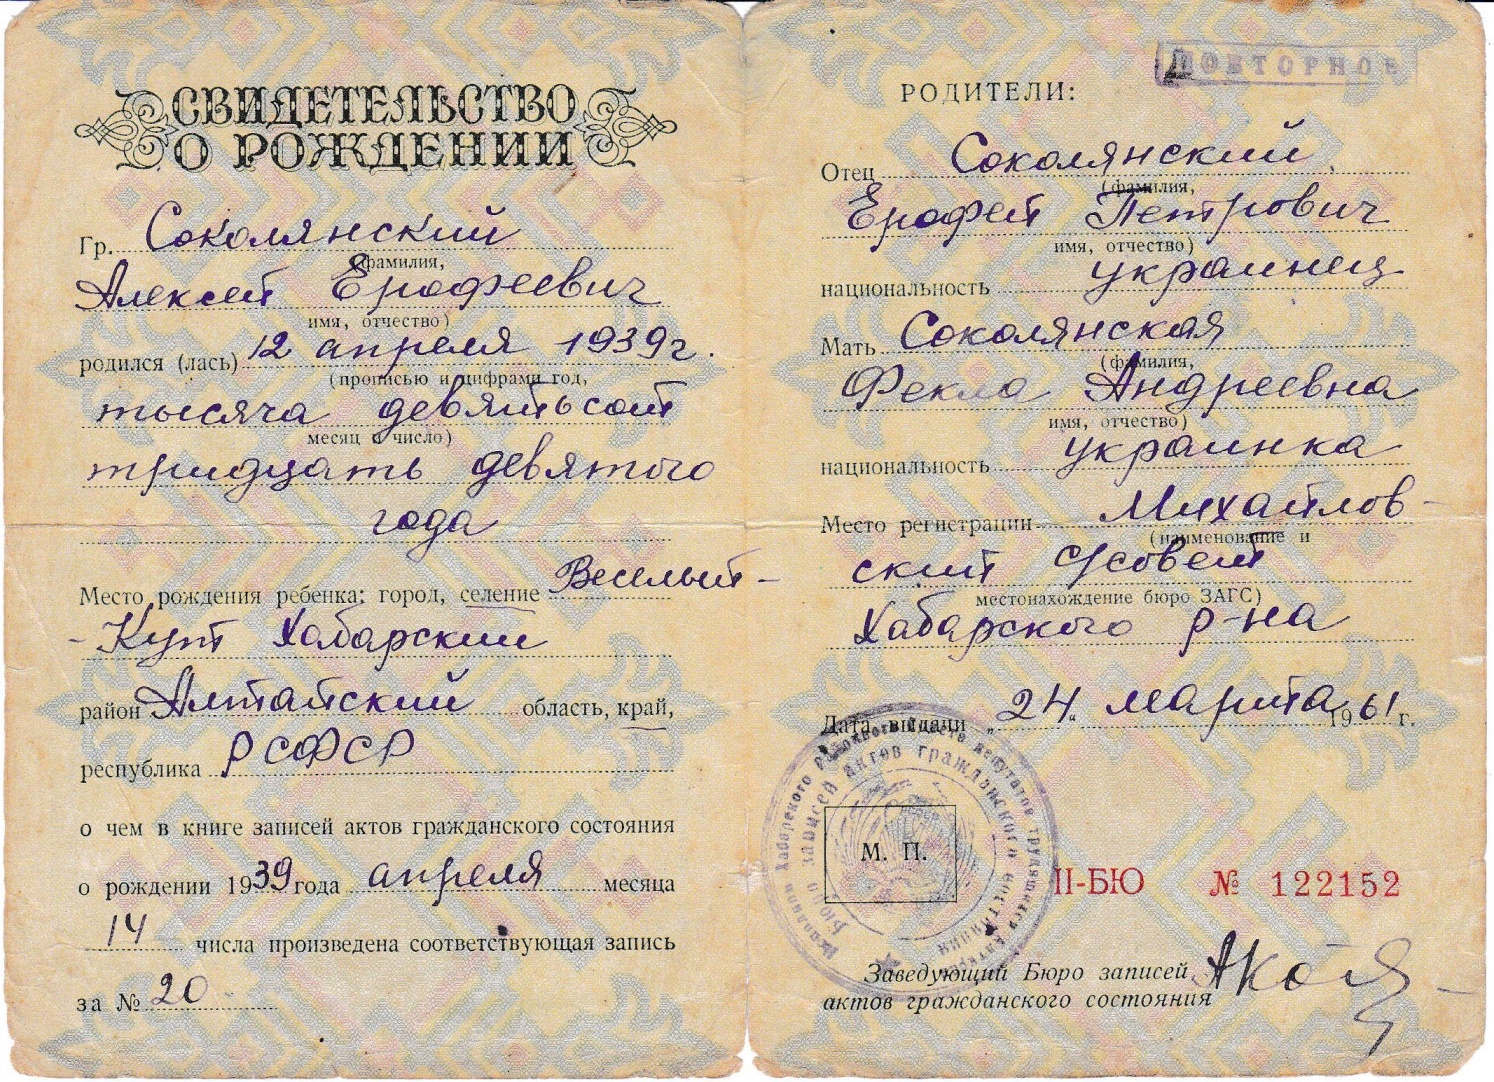 СВИДЕТЕЛЬСТВО
О РОЖДЕНИИ
Гр. Соколянский
(фамилия,
Алексей Ерофеевич
имя, отчество)
родился (лась) 12 апреля 1939 г.
(прописью и цифрами год,
тысяча девятьсот
месяц и число)
тридцать девятого
года
Место рождения ребенка: город, селение Веселый-
-Кут Хабарский
район Алтайский область, край,
республика РСФСР
о чем в книге записей актов гражданского состояния
о рождении 1939 года апреля месяца
14 числа произведена соответствующая запись
за № 20
ПОВТОРНОЕ
РОДИТЕЛИ:
Отец Соколянский,
(фамилия,
Ерофей Петрович
имя, отчество)
национальность украинец
Мать Соколянская
(фамилия,
Фекла Андреевна
имя, отчество)
национальность украинка
Место регистрации Михайлов-
(наименование и
ский с/совет
местонахождение бюро ЗАГС)
Хабарского р-на
Дата выдачи „24" марта 1961 г.
Бюро записей актов гражданского состояния
Хабарского депутатов трудящихся
М. П.
II-БЮ № 122152
Заведующий Бюро записей
актов гражданского состояния